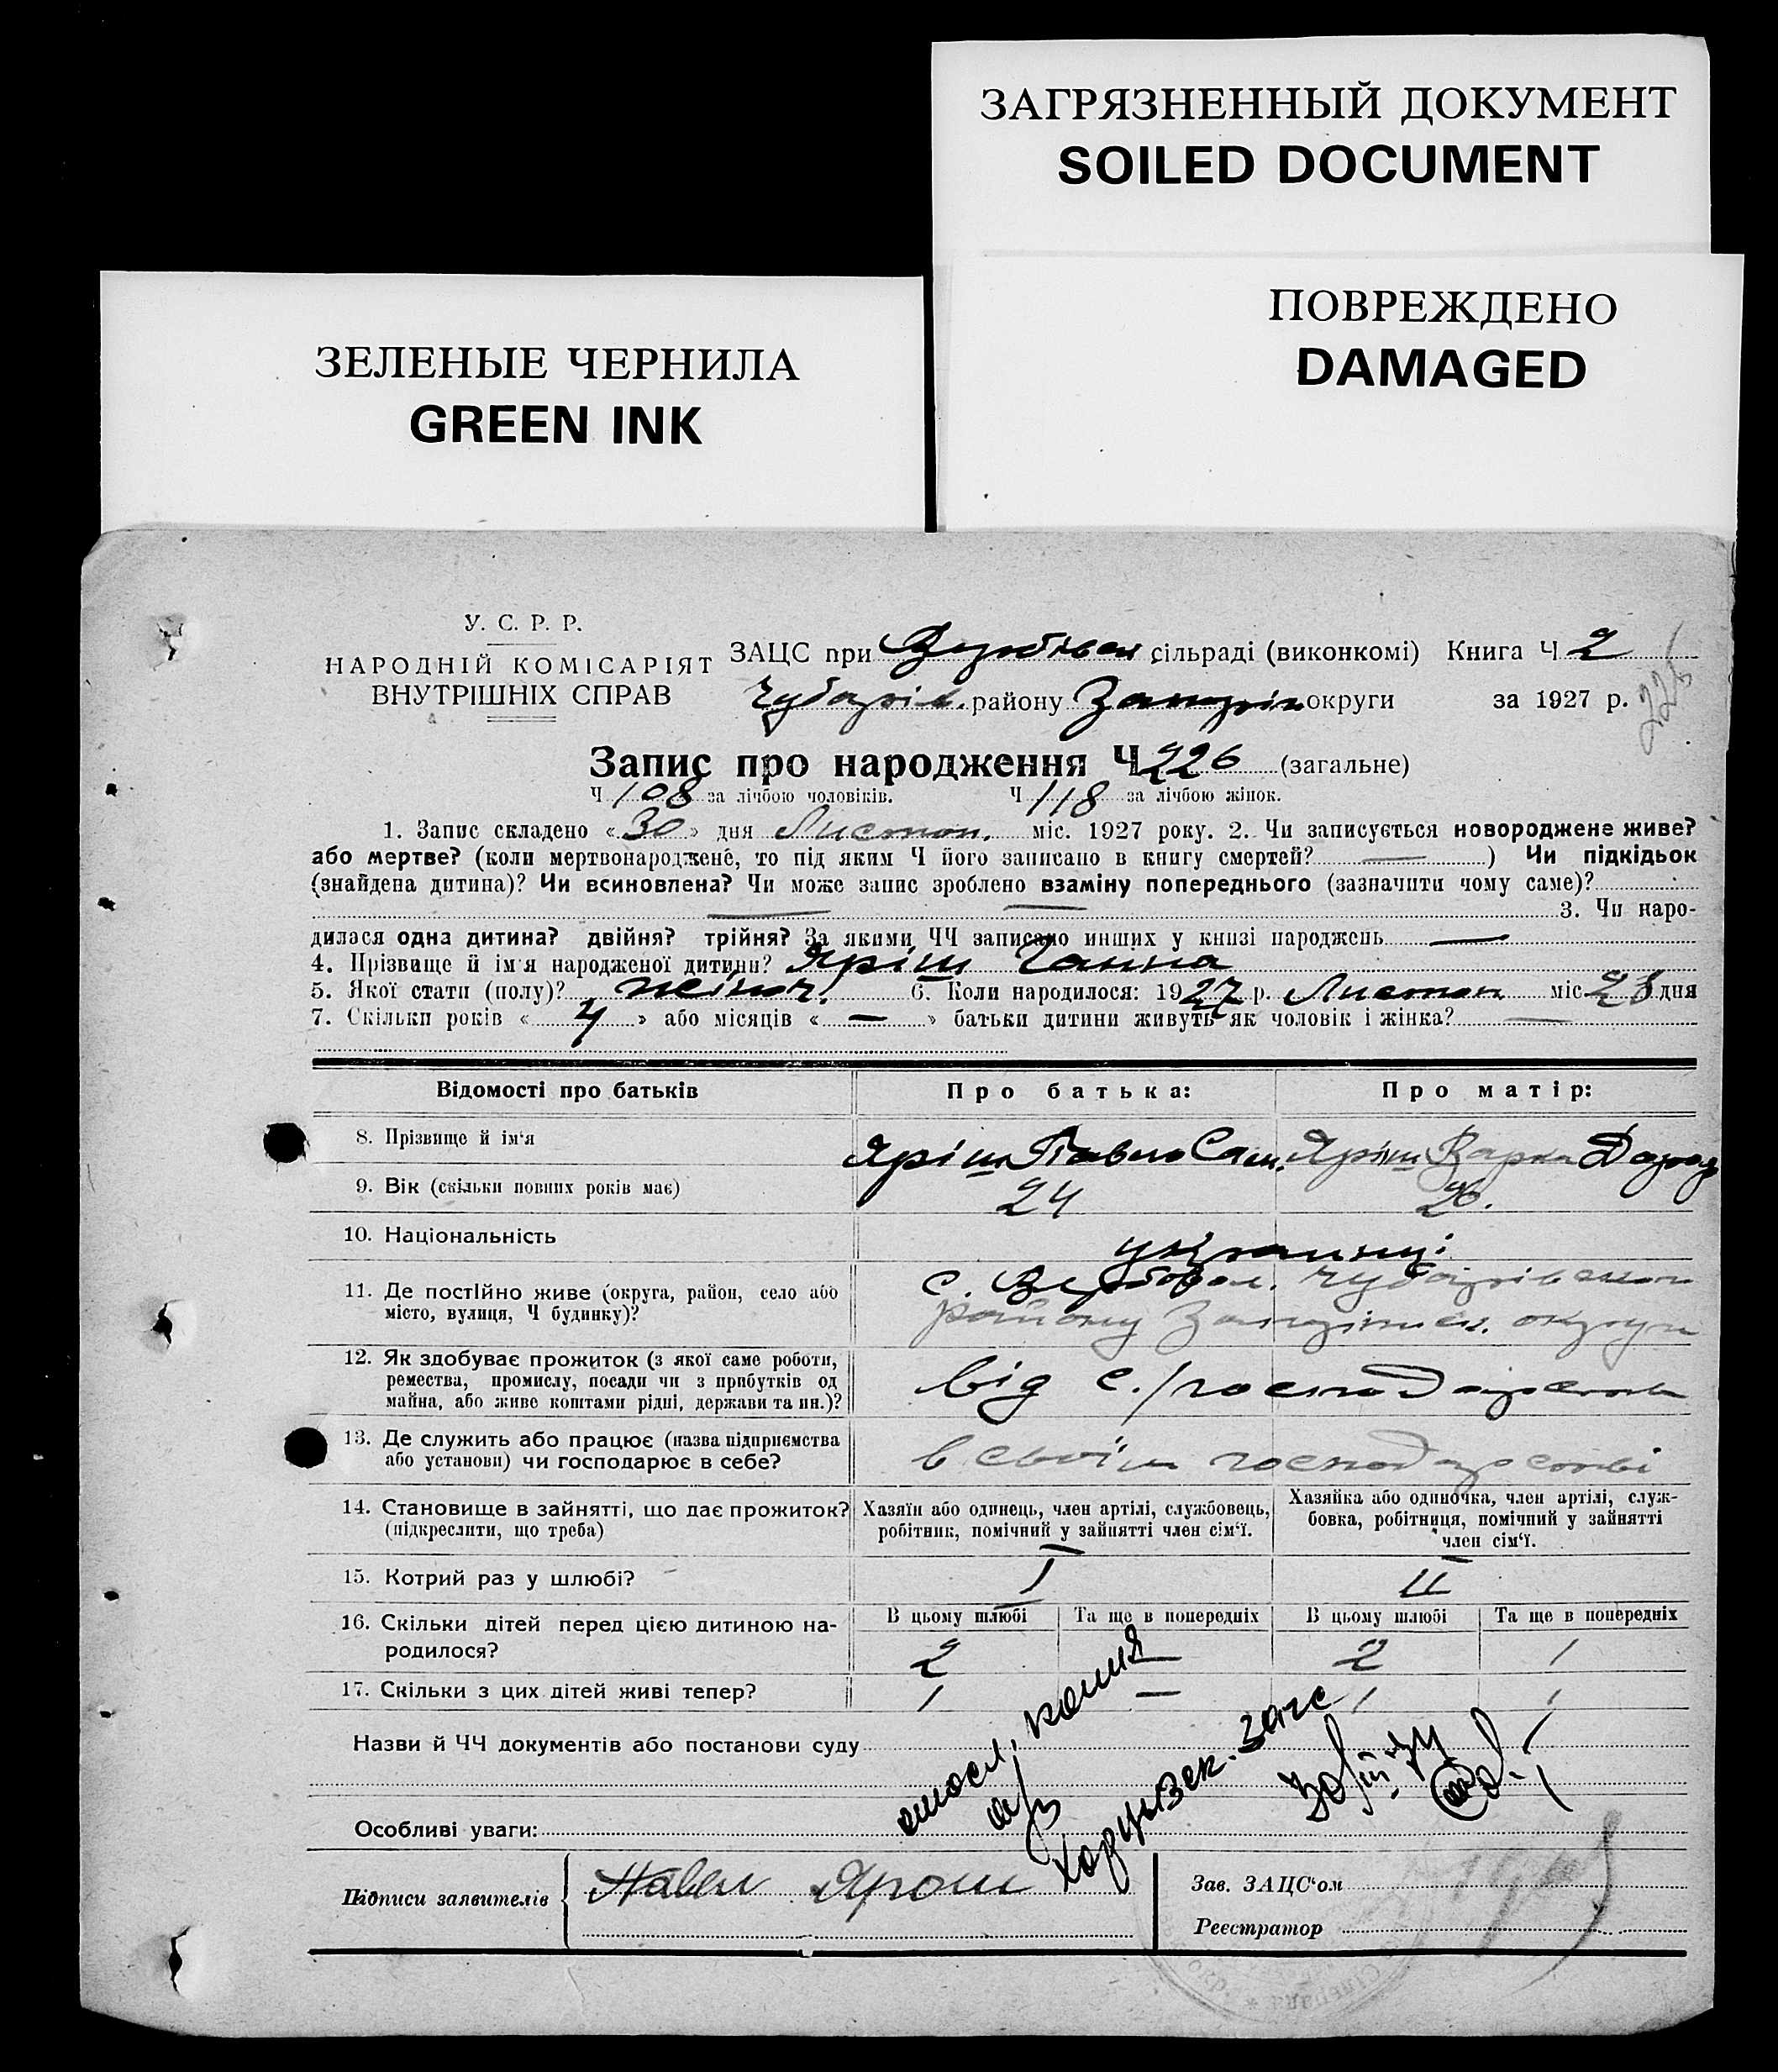 ЗАГРЯЗНЕННЫЙ ДОКУМЕНТ
SOILED DOCUMENT
ПОВРЕЖДЕНО
DAMAGED
ЗЕЛЕНЫЕ ЧЕРНИЛА
GREEN INK
У. С. Р. Р.
НАРОДНІЙ КОМІСАРІЯТ
ВНУТРІШНІХ СПРАВ
ЗАЦС при сільраді (виконкомі) Книга Ч 2
Чубарів. району округи за 1927 р.
226
Запис про народження Ч 226 (загальне)
Ч 108 за лічбою чоловіків. Ч 118 за лічбою жінок.
1. Запис складено «30» дня Листоп. міс. 1927 року. 2. Чи записується новороджене живе?
або мертве? (коли мертвонароджене, то під яким Ч його записано в книгу смертей? —) Чи підкідьок
(знайдена дитина)? Чи всиновлена? Чи може запис зроблено взаміну попереднього (зазначити чому саме)?
— — 3. Чи наро-
дилася одна дитина? двійня? трійня? За якими ЧЧ записано инших у книзі народжень —
4. Прізвище й ім'я народженої дитини? Яріш Ганна
5. Якої стати (полу)? жіноч. 6. Коли народилося: 1927 р. Листоп міс. дня
7. Скільки років «4» або місяців «—» батьки дитини живуть як чоловік і жінка? —
Відомості про батьків Про батька: Про матір:
8. Прізвище й ім'я Яріш Павло Сам. Яріш Варка
9. Вік (скільки повних років має) 24 26.
10. Національність українці
11. Де постійно живе (округа, район, село або с. Вербовое. Чубарівського
місто, вулиця, Ч будинку)? району округи
12. Як здобуває прожиток (з якої саме роботи,
ремества, промислу, посади чи з прибутків од від с./господарства
майна, або живе коштами рідні, держави та ин.)?
13. Де служить або працює (назва підприємства в своїм господарстві
або установи) чи господарює в себе?
14. Становище в зайнятті, що дає прожиток? Хазяїн або одинець, член артілі, службовець, Хазяйка або одиночка, член артілі, служ-
(підкреслити, що треба) робітник, помічний у зайнятті член сім'ї. бовка, робітниця, помічний у зайнятті
член сім'ї.
15. Котрий раз у шлюбі? I II
16. Скільки дітей перед цією дитиною на- В цьому шлюбі Та ще в попередніх В цьому шлюбі Та ще в попередніх
родилося? 2 — 2 1
17. Скільки з цих дітей живі тепер? 1 — 1 1
Назви й ЧЧ документів або постанови суду
копия
загс
Особливі уваги:
Підписи заявителів Павел Ярош
Зав. ЗАЦС'ом
Реєстратор